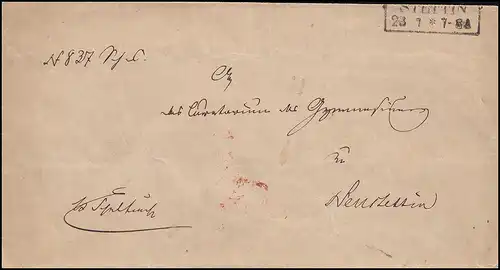 STETTIN
23 7 * 7-8A
N 837 Sch.
An
das Curatorium des Gymnasiums
zu
Neustettin